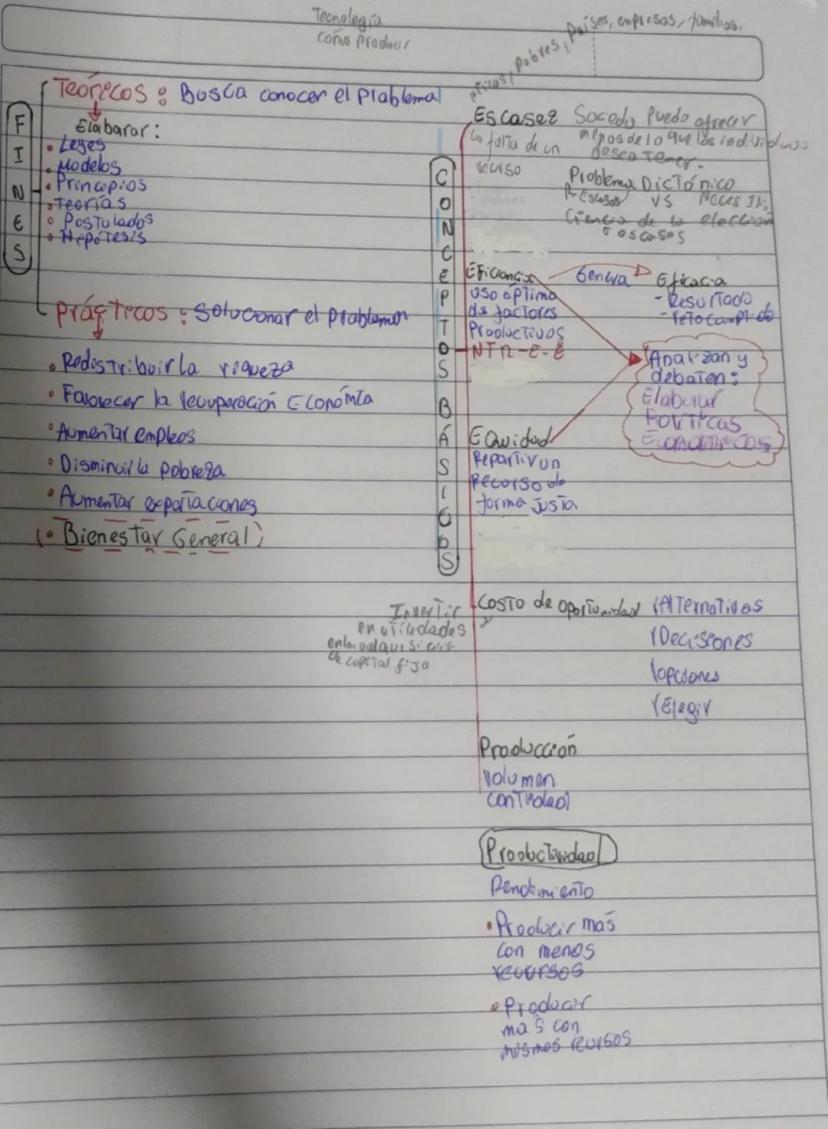 Tecnología
como producir
Pobres, Países, empresas, familias.
FINES
Teóricos: Busca conocer el problema
Elaborar:
• Leyes
• Modelos
• Principios
• Teorías
• Postulados
• Hipótesis
Prácticos: Solucionar el problema
• Redistribuir la riqueza
• Favorecer la recuperación Económia
• Aumentar empleos
• Disminuir la pobreza
• Aumentar expotaciones
(• Bienestar General)
CONCEPTOS BÁSICOS
Escasez
la falta de un
recurso
puede ofrecer
menos de lo que los individuos
desea tener.
Problema
VS
Ciencia de la elección
Eficiencia
uso óptimo
de factores
Productivos
NTn-E-E
Genera
Eficacia
- Resultado
- reto cumplido
Analizan y
debaten:
Elaborar
Políticas
Económicas
Equidad
Repartir un
recurso de
forma Justa
Costo de oportunidad
Invertir
en utilidades
en la adquisición
de capital fijo
(Alternativas
(Decisiones
(opciones
(Elegir
Producción
Volumen
Productividad
Rendimiento
• Producir más
con menos
recursos
• Producir
más con
mismos recursos